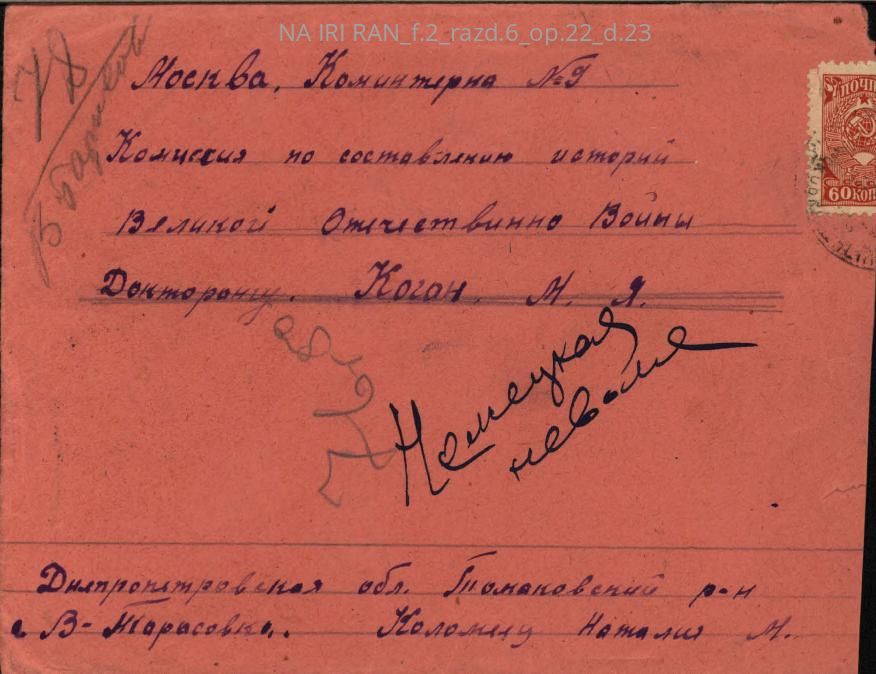 NA IRI RAN_f.2_razd.6_op.22_d.23
Москва, Коминтерна №9
Комиссия по составлению историй
Великой Отечествинно Войны
Докторанту. Коган. М. Я.
Немецкая
неволя
Днепропетровская обл. Томаковский р-н
с В-Тарасовка. Коломиец Наталия М.
ПОЧТА
60 КОП